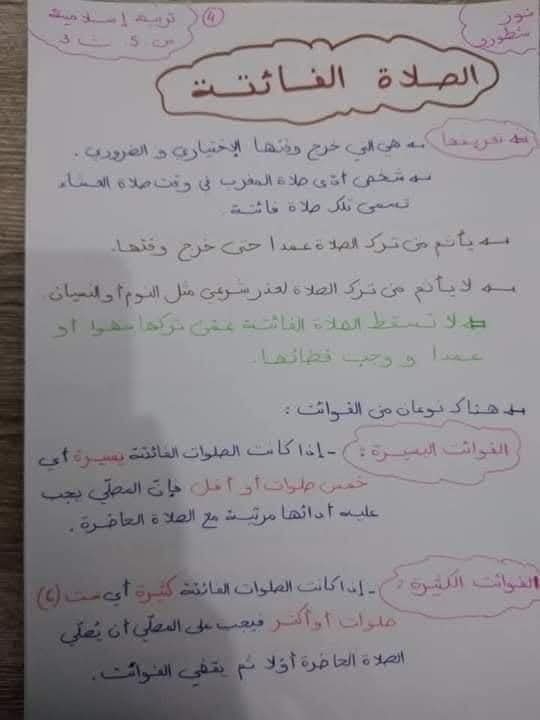 نور
شطورو
④
تربية إسلامية
س 5 ث 3
الصلاة الفائتة
تعريفها
هي التي خرج وقتها الإختياري و الضروري.
شخص أدّى صلاة المغرب في وقت صلاة العشاء
تسمى تلك صلاة فائتة.
يأثم من ترك الصلاة عمدا حتى خرج وقتها.
لا يأثم من ترك الصلاة لعذر شرعي مثل النوم أو النسيان.
لا تسقط الصلاة الفائتة عمن تركها سهوا أو
عمدا و وجب قضائها.
هناك نوعان من الفوائت :
الفوائت اليسيرة : - إذا كانت الصلوات الفائتة يسيرة أي
خمس صلوات أو أقل فإنّ المصلّي يجب
عليه أدائها مرتبة مع الصلاة الحاضرة.
الفوائت الكثيرة : - إذا كانت الصلوات الفائتة كثيرة أي ست (6)
صلوات أو أكثر فيجب على المصلّي أن يُصلّي
الصلاة الحاضرة أوّلا ثم يقضي الفوائت.